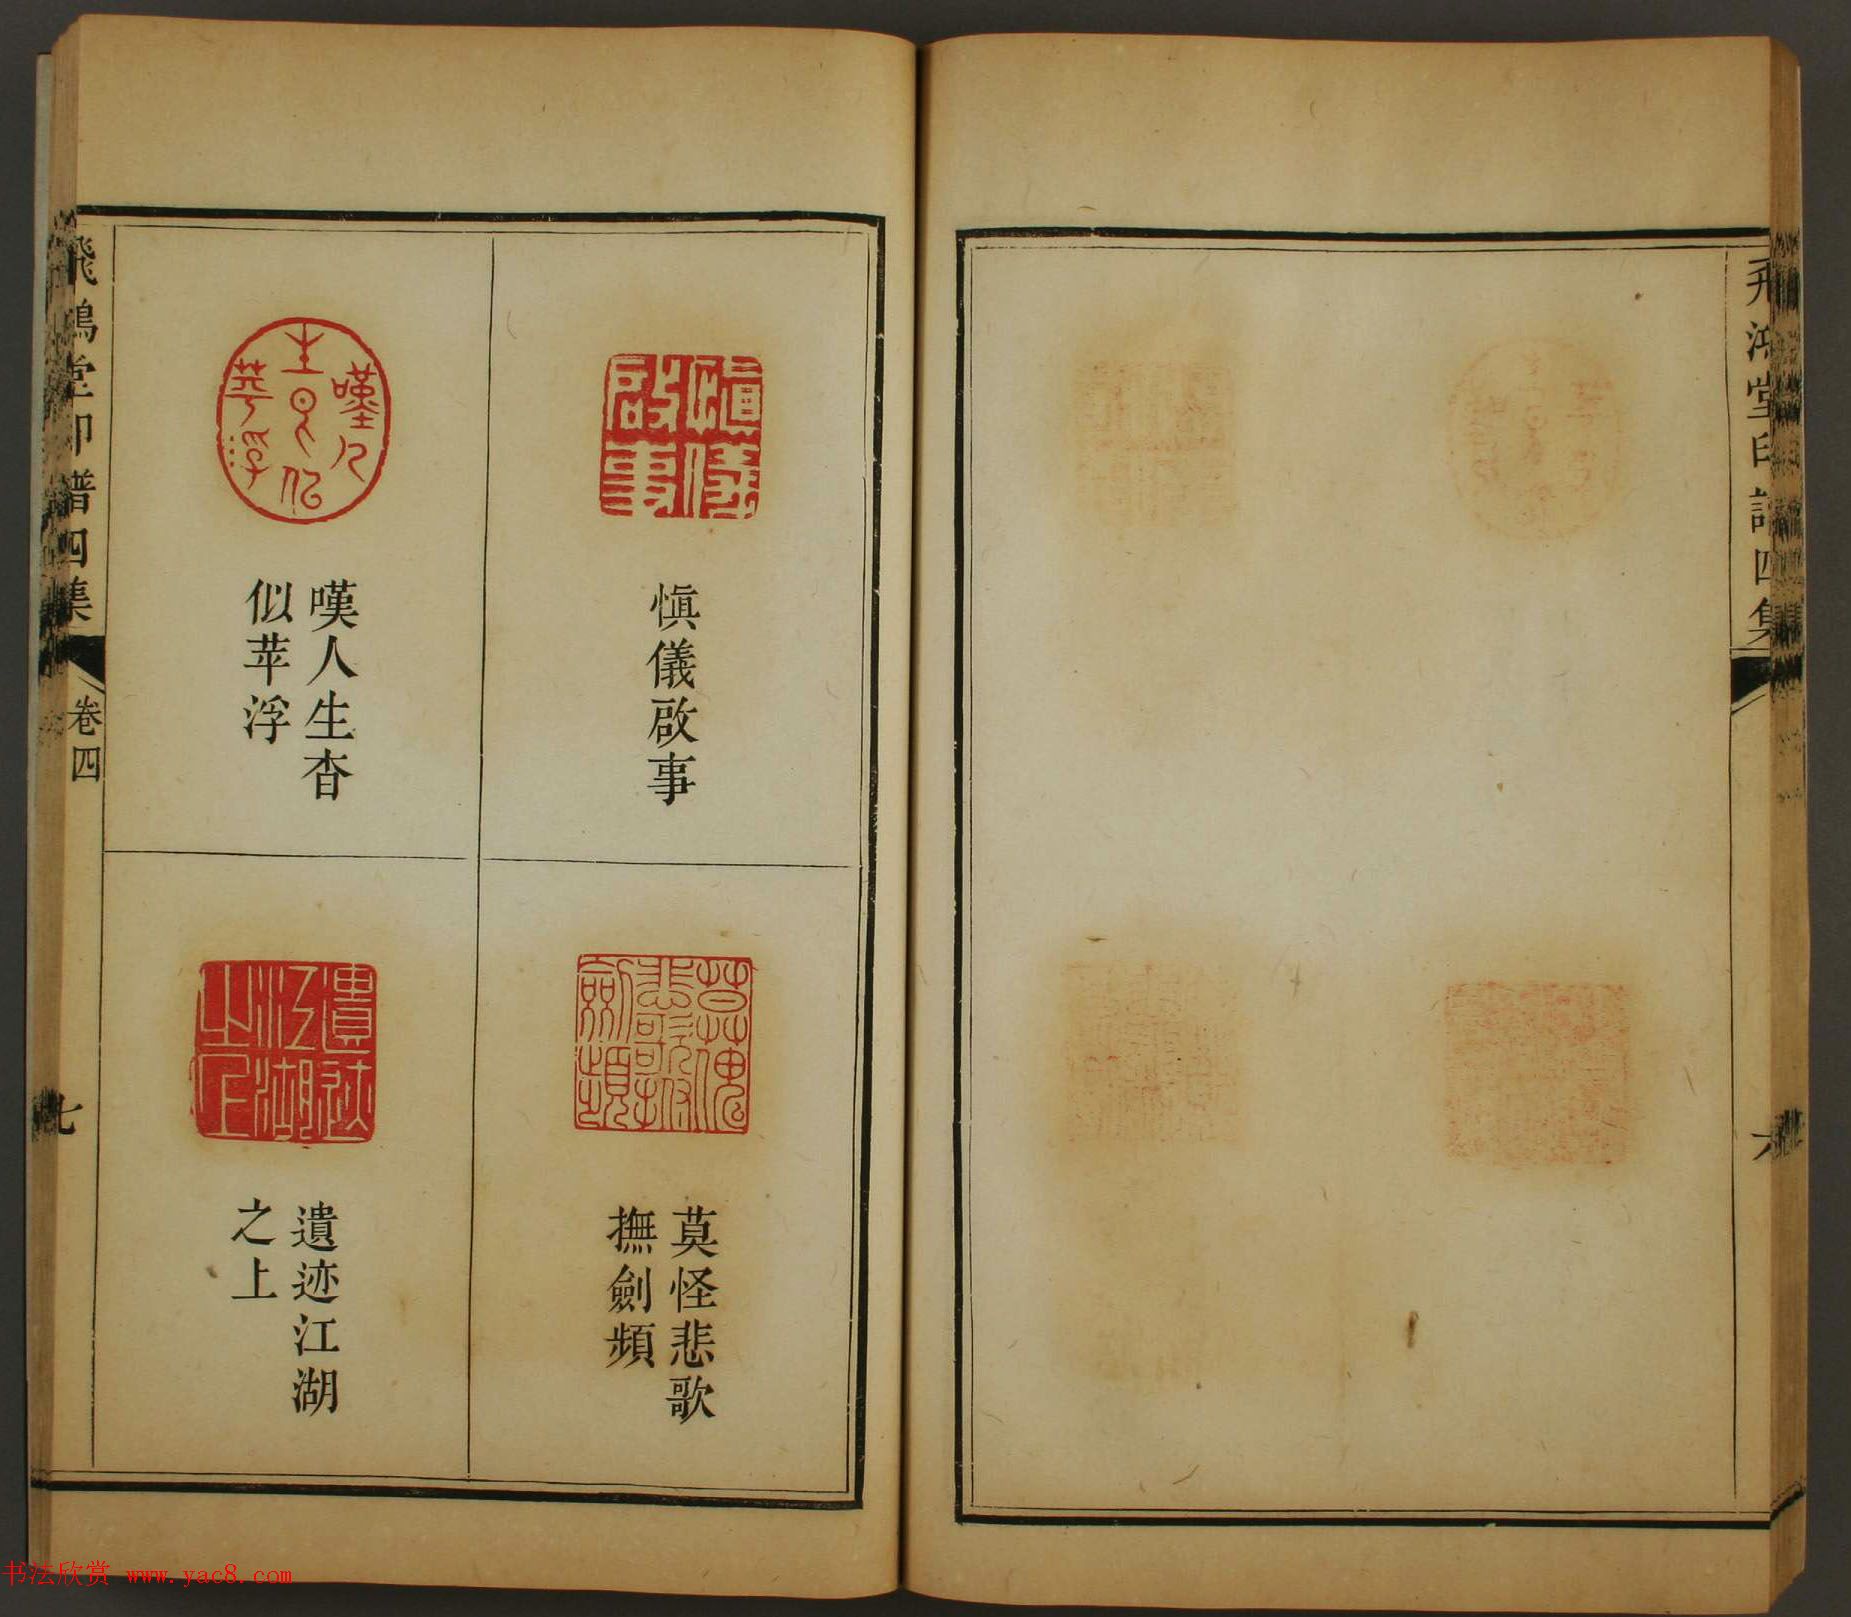 飛鴻堂印譜四集
六
愼儀啟事
嘆人生杳
似苹浮
莫怪悲歌
撫劍頻
遺迹江湖
之上
飛鴻堂印譜四集
卷四
七
书法欣赏 www.yac8.com